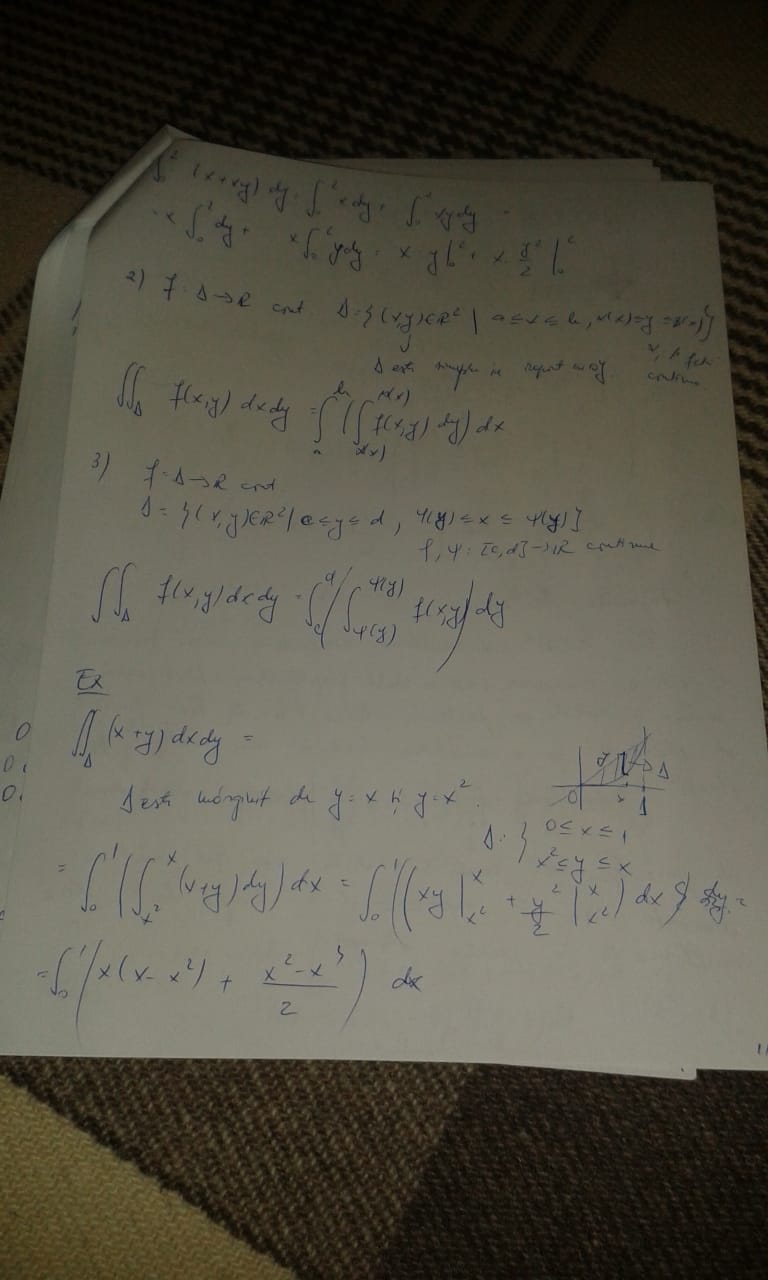 ∫₀² (x+xy) dy = ∫₀² x dy + ∫₀² xy dy =
= x ∫₀² dy + x ∫₀² y dy = x · y |₀² + x · y²/2 |₀²
2) f : Δ → R cont Δ = {(x,y)∈R² | a ≤ x ≤ b,
Δ este simplu în raport cu oy continue
∬_Δ f(x,y) dx dy = ∫ₐᵇ ( ∫ f(x,y) dy) dx
3) f : Δ → R cont
Δ = {(x,y)∈R² | c ≤ y ≤ d, φ(y) ≤ x ≤ ψ(y)}
φ, ψ : [c,d] → R continue
∬_Δ f(x,y) dx dy = ∫_c^d ( ∫_φ(y)^ψ(y) f(x,y) ) dy
Ex
∬_Δ (x+y) dx dy =
Δ este mărginit de y = x și y = x².
0 x 1 Δ
Δ : { 0 ≤ x ≤ 1
x² ≤ y ≤ x
= ∫₀¹ ( ∫_x²^x (x+y) dy) dx = ∫₀¹ ((xy |_x²^x + y²/2 |_x²^x ) dx
= ∫₀¹ ( x(x - x²) + (x² - x⁴)/2 ) dx